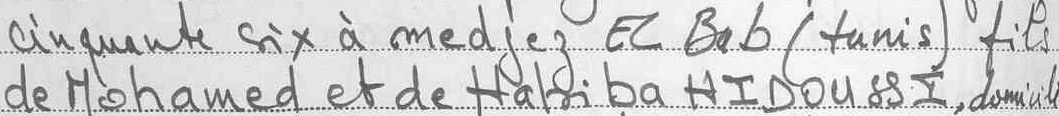 cinquante six à medjez EL Bab (tunis) fils
de Mohamed et de Habiba HIDOUSSI, domicil